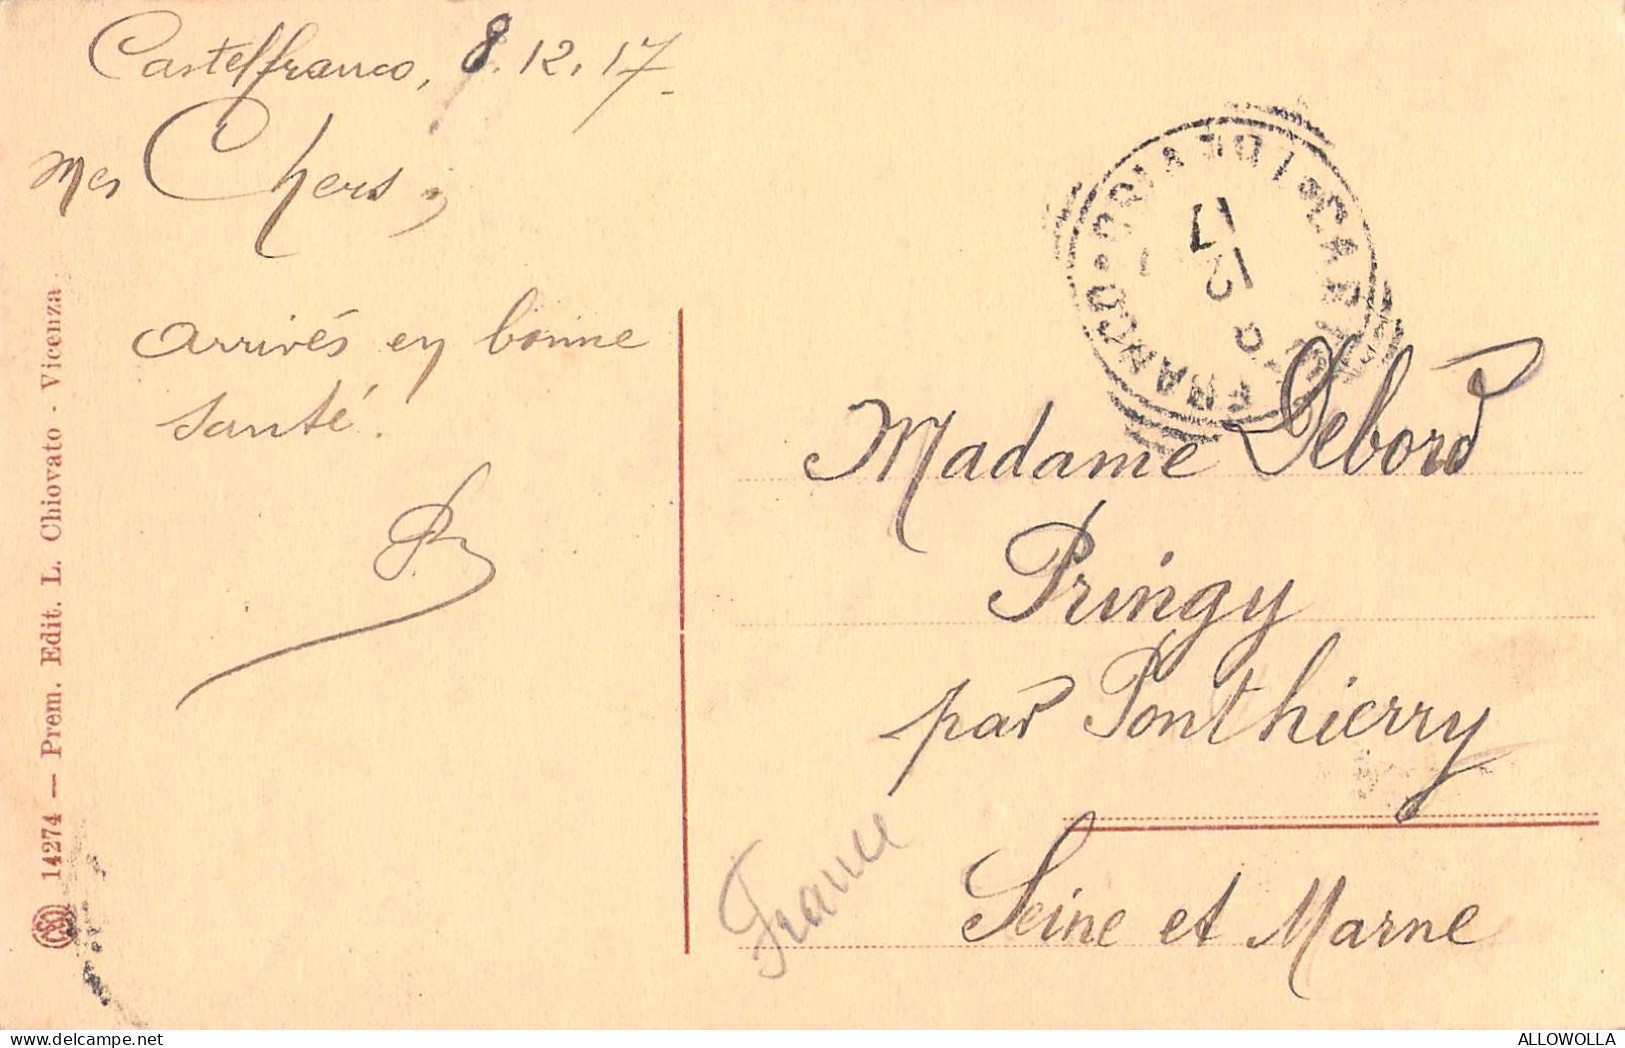 Castelfranco, 8.12.17
Mes Chers,
arrivés en bonne
santé.
14274 — Prem. Edit. L. Chiovato - Vicenza
12
17
Madame Debord
Pringy
par Ponthierry
Seine et Marne
France
ALLOWOLLA